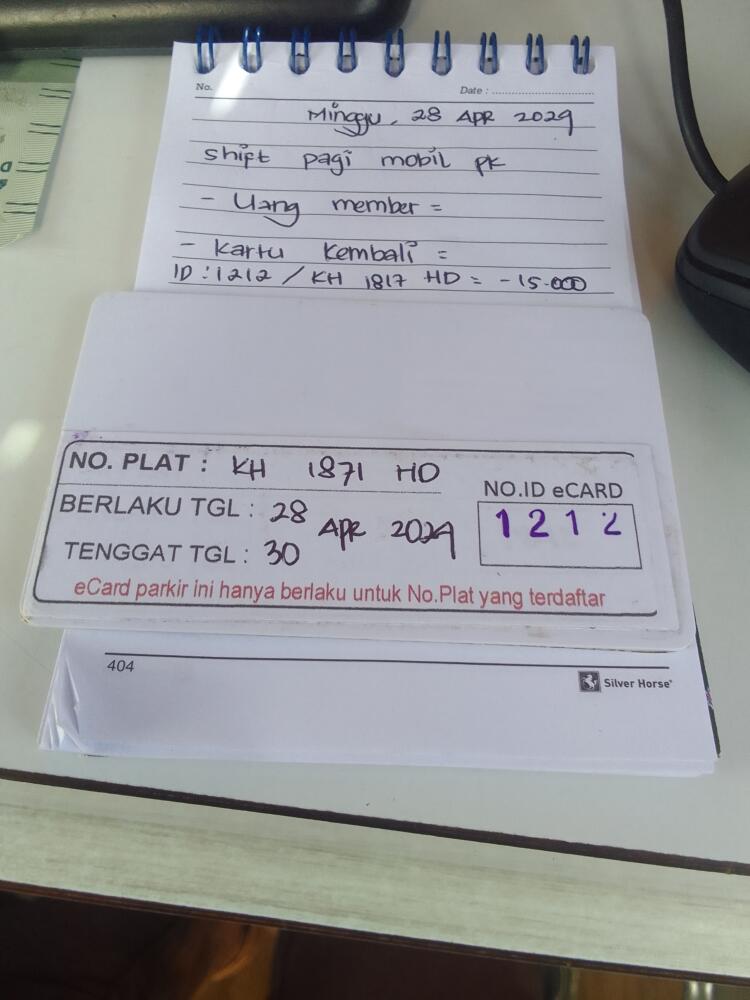 No.
Date :
Minggu, 28 APR 2024
shift pagi mobil pk
- Uang member =
- Kartu Kembali =
ID : 1212 / KH 1817 HD = -15.000
NO. PLAT : KH 1871 HD
BERLAKU TGL : 28
APR 2024
TENGGAT TGL : 30
NO.ID eCARD
1212
eCard parkir ini hanya berlaku untuk No.Plat yang terdaftar
404
Silver Horse